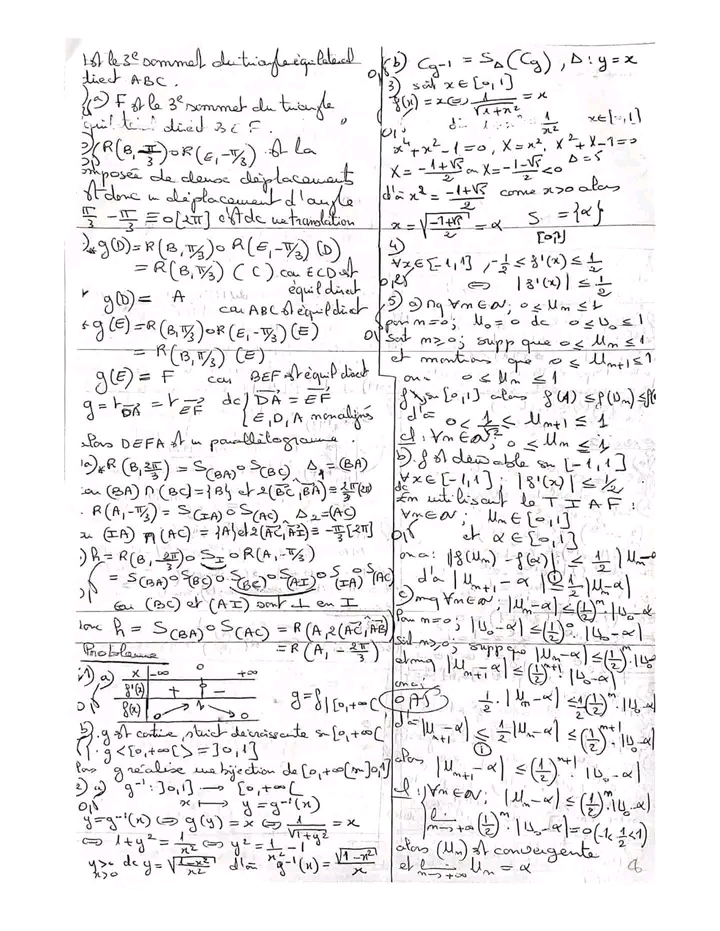 est le 3e sommet du triangle équilatéral
direct ABC.
2) a) F est le 3e sommet du triangle
équilatéral direct BCF.
R(B, π/3) o R(E, -π/3) est la
composée de deux déplacements
est donc un déplacement d'angle
π/3 - π/3 ≡ 0[2π] c'est dc une translation
* g(D) = R(B, π/3) o R(E, -π/3) (D)
= R(B, π/3) (C) car ECD est
équil direct
g(D) = A
car ABC est équil direct
* g(E) = R(B, π/3) o R(E, -π/3) (E)
= R(B, π/3) (E)
g(E) = F car BEF est équil direct
g = t DA→ = t EF→ dc { DA→ = EF→
E, D, A non alignés
Alors DEFA est un parallélogramme.
a) * R(B, 2π/3) = S(BA) o S(BC) Δ1 = (BA)
car (BA) ∩ (BC) = {B} et 2(BC→, BA→) ≡ 2π/3 (2π)
. R(A, -π/3) = S(IA) o S(AC) Δ2 = (AC)
(IA) ∩ (AC) = {A} et 2(AC→, AI→) ≡ -π/3 [2π]
h = R(B, 2π/3) o S_I o R(A, -π/3)
= S(BA) o S(BC) o S(BC) o S(AI) o S(IA) o S(AC)
car (BC) et (AI) sont ⊥ en I
donc h = S(BA) o S(AC) = R(A, 2(AC→, AB→))
= R(A, -2π/3)
Problème
1) a) x -∞ 0 +∞
f'(x) + 0 -
f(x) 0 1 0
g = f|[0, +∞[
b) . g est continue, strict décroissante sur [0, +∞[
. g<[0, +∞[> = ]0, 1]
Alors g réalise une bijection de [0, +∞[ sur ]0, 1]
2) a) g⁻¹ : ]0, 1] → [0, +∞[
x ↦ y = g⁻¹(x)
y = g⁻¹(x) ⇔ g(y) = x ⇔ 1/√(1+y²) = x
⇔ 1+y² = 1/x² ⇔ y² = 1/x² - 1
y>0 x>0 dc y = √((1-x²)/x²) d'où g⁻¹(x) = √(1-x²)/x
b) Cg⁻¹ = S_Δ(Cg), Δ : y = x
3) soit x ∈ [0, 1]
f(x) = x ⇔ 1/√(1+x²) = x
1/x² x ∈ [0, 1]
x⁴ + x² - 1 = 0, X = x², X² + X - 1 = 0
Δ = 5
X = (-1+√5)/2 ou X = (-1-√5)/2 < 0
d'où x² = (-1+√5)/2 comme x>0 alors
x = √((-1+√5)/2) = α S[0,1] = {α}
4)
∀x ∈ [-1, 1], -1/2 ≤ f'(x) ≤ 1/2
0,25 ⇔ |f'(x)| ≤ 1/2
5) a) mq ∀n ∈ ℕ; 0 ≤ Un ≤ 1
pour n = 0; U0 = 0 dc 0 ≤ U0 ≤ 1
soit n ≥ 0; supp que 0 ≤ Un ≤ 1
et montrons que 0 ≤ Un+1 ≤ 1
on a 0 ≤ Un ≤ 1
f ↘ sur [0, 1] alors f(1) ≤ f(Un) ≤ f(0)
d'où 0 < 1/√2 ≤ Un+1 ≤ 1
cl : ∀n ∈ ℕ; 0 ≤ Un ≤ 1
b) . f est dérivable sur [-1, 1]
∀x ∈ [-1, 1]; |f'(x)| ≤ 1/2
En utilisant le T I A F :
∀n ∈ ℕ; Un ∈ [0, 1]
et α ∈ [0, 1]
on a : |f(Un) - f(α)| ≤ 1/2 |Un - α|
d'où |Un+1 - α| ≤ 1/2 |Un - α|
c) mq ∀n ∈ ℕ; |Un - α| ≤ (1/2)ⁿ . |U0 - α|
Pour n = 0; |U0 - α| ≤ (1/2)⁰ . |U0 - α|
soit n ≥ 0; supp que |Un - α| ≤ (1/2)ⁿ . |U0 - α|
et mq |Un+1 - α| ≤ (1/2)ⁿ⁺¹ . |U0 - α|
on a :
0,75 1/2 . |Un - α| ≤ 1/2 (1/2)ⁿ . |U0 - α|
d'où |Un+1 - α| ≤ 1/2 |Un - α| ≤ (1/2)ⁿ⁺¹ . |U0 - α|
alors |Un+1 - α| ≤ (1/2)ⁿ⁺¹ . |U0 - α|
cl : ∀n ∈ ℕ; |Un - α| ≤ (1/2)ⁿ . |U0 - α|
lim n→+∞ (1/2)ⁿ . |U0 - α| = 0 (-1 < 1/2 < 1)
alors (Un) est convergente
et lim n→+∞ Un = α